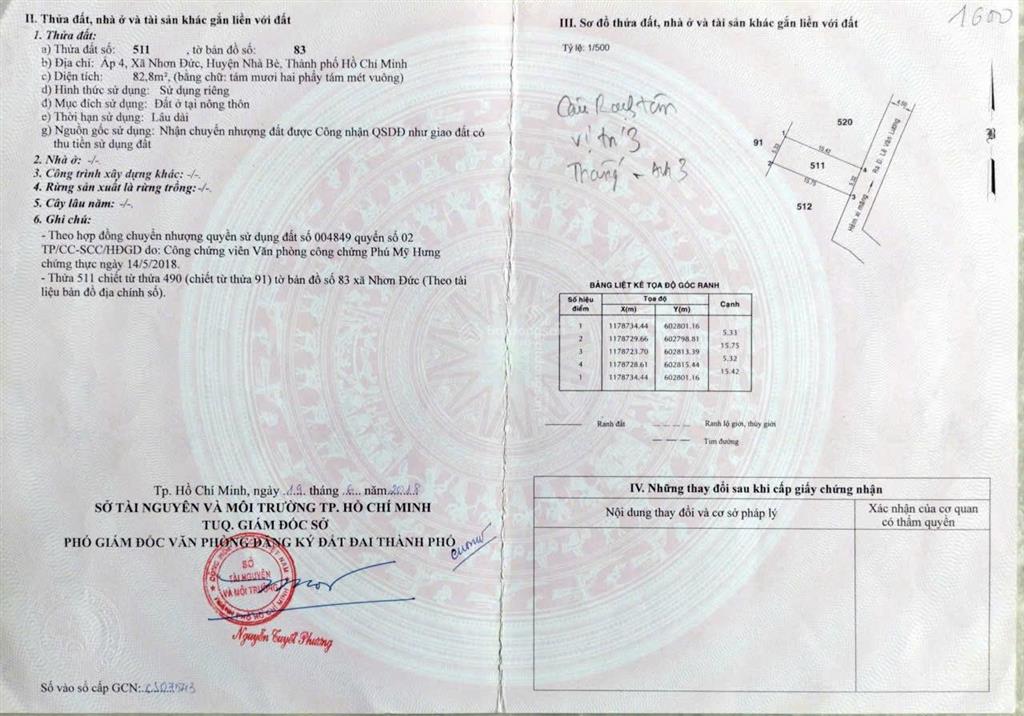 II. Thửa đất, nhà ở và tài sản khác gắn liền với đất
1. Thửa đất:
a) Thửa đất số: 511 , tờ bản đồ số: 83
b) Địa chỉ: Ấp 4, Xã Nhơn Đức, Huyện Nhà Bè, Thành phố Hồ Chí Minh
c) Diện tích: 82,8m², (bằng chữ: tám mươi hai phẩy tám mét vuông)
d) Hình thức sử dụng: Sử dụng riêng
đ) Mục đích sử dụng: Đất ở tại nông thôn
e) Thời hạn sử dụng: Lâu dài
g) Nguồn gốc sử dụng: Nhận chuyển nhượng đất được Công nhận QSDĐ như giao đất có
thu tiền sử dụng đất
2. Nhà ở: -/-.
3. Công trình xây dựng khác: -/-.
4. Rừng sản xuất là rừng trồng:-/-.
5. Cây lâu năm: -/-.
6. Ghi chú:
- Theo hợp đồng chuyển nhượng quyền sử dụng đất số 004849 quyển số 02
TP/CC-SCC/HĐGD do: Công chứng viên Văn phòng công chứng Phú Mỹ Hưng
chứng thực ngày 14/5/2018.
- Thửa 511 chiết từ thửa 490 (chiết từ thửa 91) tờ bản đồ số 83 xã Nhơn Đức (Theo tài
liệu bản đồ địa chính số).
Tp. Hồ Chí Minh, ngày 19 tháng 6 năm 2018
SỞ TÀI NGUYÊN VÀ MÔI TRƯỜNG TP. HỒ CHÍ MINH
TUQ. GIÁM ĐỐC SỞ
PHÓ GIÁM ĐỐC VĂN PHÒNG ĐĂNG KÝ ĐẤT ĐAI THÀNH PHỐ
SỞ
TÀI NGUYÊN
VÀ MÔI TRƯỜNG
Nguyễn Tuyết Phương
Số vào sổ cấp GCN:
III. Sơ đồ thửa đất, nhà ở và tài sản khác gắn liền với đất
1600
Tỷ lệ: 1/500
vị trí 3
B
4.50
520
91
1
15.42
5.33
511
Ra Đ. Lê Văn Lương
2
4
15.75
5.32
3
512
Hẻm xi măng
BẢNG LIỆT KÊ TỌA ĐỘ GÓC RANH
Số hiệu điểm Tọa độ Cạnh
X(m) Y(m)
1 1178734.44 602801.16
5.33
2 1178729.66 602798.81
15.75
3 1178723.70 602813.39
5.32
4 1178728.61 602815.44
15.42
1 1178734.44 602801.16
Ranh đất Ranh lộ giới, thủy giới
Tim đường
IV. Những thay đổi sau khi cấp giấy chứng nhận
Nội dung thay đổi và cơ sở pháp lý
Xác nhận của cơ quan
có thẩm quyền